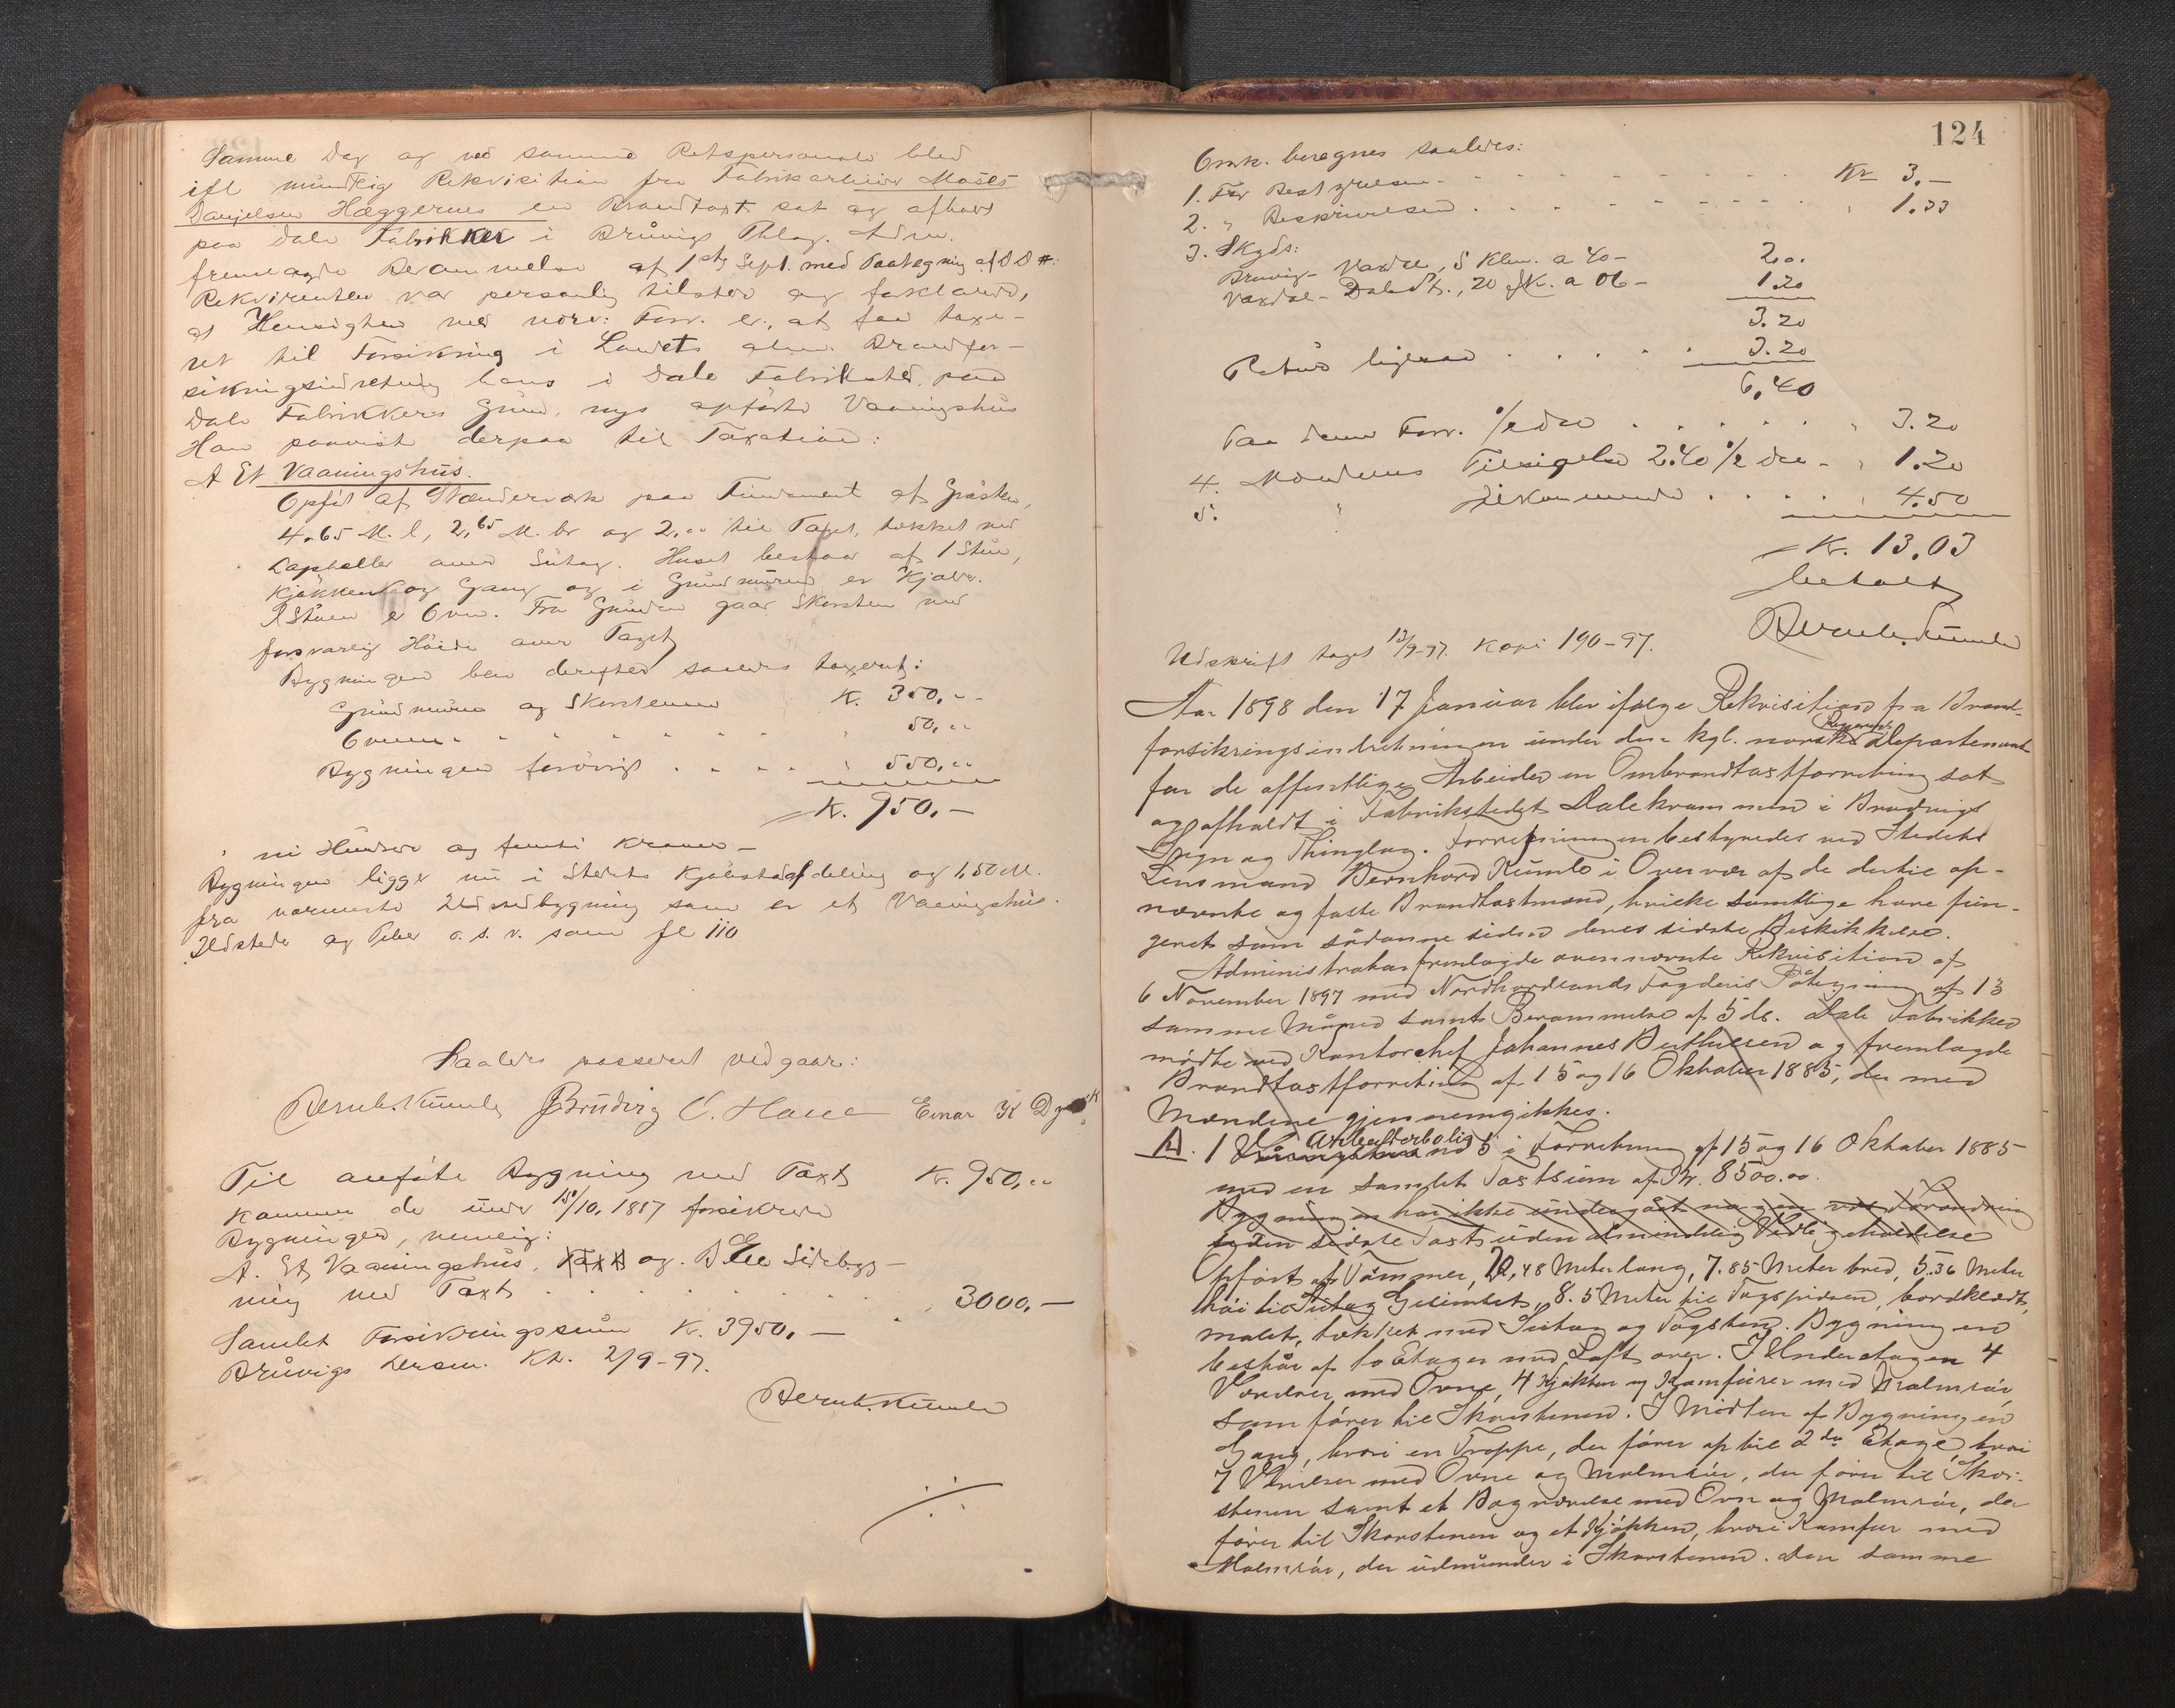 Samme Dag og ved samme Retspersonale blev
ifl mundtlig Rekvisition fra Fabrikarbeider Moses
Danjelsen Hæggernes en Brandtaxt sat og afholdt
paa Dale Fabrikker i Bruvigs Thlag. Adm.
fremlagde Berammelse af 1ste Sept. med Paategning af D D #:
Rekvirenten var personlig tilstede og forklarede,
at Hensigten med nærv: Forr. er, at faa taxe-
ret til Forsikring i Landets alm. Brandfor-
sikringsindretning hans i Dale Fabriksted paa
Dale Fabrikkers Grund nys opførte Vaaningshus
Han paaviste derpaa til Taxation:
A Et Vaaningshus.
Opført af Stænderværk paa Fundament af Graasten,
4.65 M. l, 2,65 M. br og 2,00 til Taget, tækket med
Lapheller over Sutag. Huset bestaar af 1 Stue,
Kjøkken og Gang og i Grundmuren er Kjæld.
I Stuen er Ovn. Fra Grunden gaar Skorsten med
forsvarlig Høide over Taget
Bygningen blev derefter saaledes taxeret:
Grundmuren og Skorstenen K. 350,--
Ovnen " 50,--
Bygningen forøvrigt " 550,00
K. 950.-
: ni Hundrede og femti Kroner -
Bygningen ligger nu i Stedets Kjøbstadafdeling og 1,50 M.
fra nærmeste Ildstedbygning som er et Vaaningshus.
Ildsteder og Piber o. s. v. som fl 110
Saaledes passeret vedgaar:
Bernh. Kumle J Brudvig O. Hane Einar K Dyvik
Til anførte Bygning med Taxt K. 950,00
kommer de under 15/10, 1887 forsikrede
Bygninger, nemlig:
A. Et Vaaningshus, Taxt og B En Sidebyg-
ning med Taxt " 3000,-
Samlet Forsikringssum K. 3950,-
Bruvigs Lensm. Kt. 2/9-97.
Bernh. Kumle
124
Omk. beregnes saaledes:
1. For Bestyrelsen Kr 3.-
2. " Beskrivelsen " 1.33
3. Skyds:
Bruvig - Vaxdal, 5 Klm. a 40 - 2,00
Vaxdal - Dale St., 20 Kl. a 06 - 1.20
3.20
Retur ligesaa 3.20
6,40
Paa denne Forr. 1/2 dre " 3.20
4. Mændenes Tilsigelse 2.40 1/2 dre - " 1.20
5. " Tilkommende " 4.50
Kr. 13,03
betalt
Bernh. Kumle
Udskrift taget 13/9-97. Kopi 190-97.
Aar 1898 den 17 Januar blev ifølge Rekvisition fra Brand-
forsikringsindretningen under den kgl. norske Regjerings Departement
for de offentlige Arbeider en Ombrandtaxtforretning sat
og afholdt i Fabrikstedet Dalekvammen i Brudvigs
Sogn og Thinglag. Forretningen bestyredes ved Stedets
Lensmand Bernhard Kumle i Overvær af de dertil op-
nævnte og faste Brandtaxtmænd, hvilke samtlige have fun-
geret som sådanne siden deres sidste Beskikkelse.
Administrator fremlagde ovennævnte Rekvisition af
6 November 1897 med Nordhordlands Fogderis Påtegning af 13
samme Måned samt Berammelse af 5 ds. Dale Fabrikker
mødte ved Kontorchef Johannes Berthelsen og fremlagde
Brandtaxtforretning af 15 og 16 Oktober 1885, der med
Mændene gjennemgikkes.
A. 1 Våningshus Arbeiderbolig no 5 i Forretning af 15 og 16 Oktober 1885
med en samlet Taxtsum af Kr. 8500.00.
Bygningen har ikke undergået nogen Forandring
siden sidste Taxt uden almindelig Vedligeholdelse
Opført af Tømmer, 12,48 Meter lang, 7.85 Meter bred, 5.36 Meter
høi til Sutag Gesimset, 8.5 Meter til Tagspidsen, bordklædt,
malet, tækket med Sutag og Tagsten. Bygningen
består af to Etager med Loft over. I Underetagen 4
Værelser med Ovne, 4 Kjøkken og Komfurer med Malmrør,
som fører til Skorstenen. I Midten af Bygningen
Gang, hvori en Trappe, der fører op til 2den Etage hvori
7 Værelser med Ovne og Malmrør, der fører til Skor-
stenen samt et Bagværelse med Ovn og Malmrør, der
fører til Skorstenen og et Kjøkken, hvori Komfur med
Malmrør, der udmunder i Skorstenen. Den samme